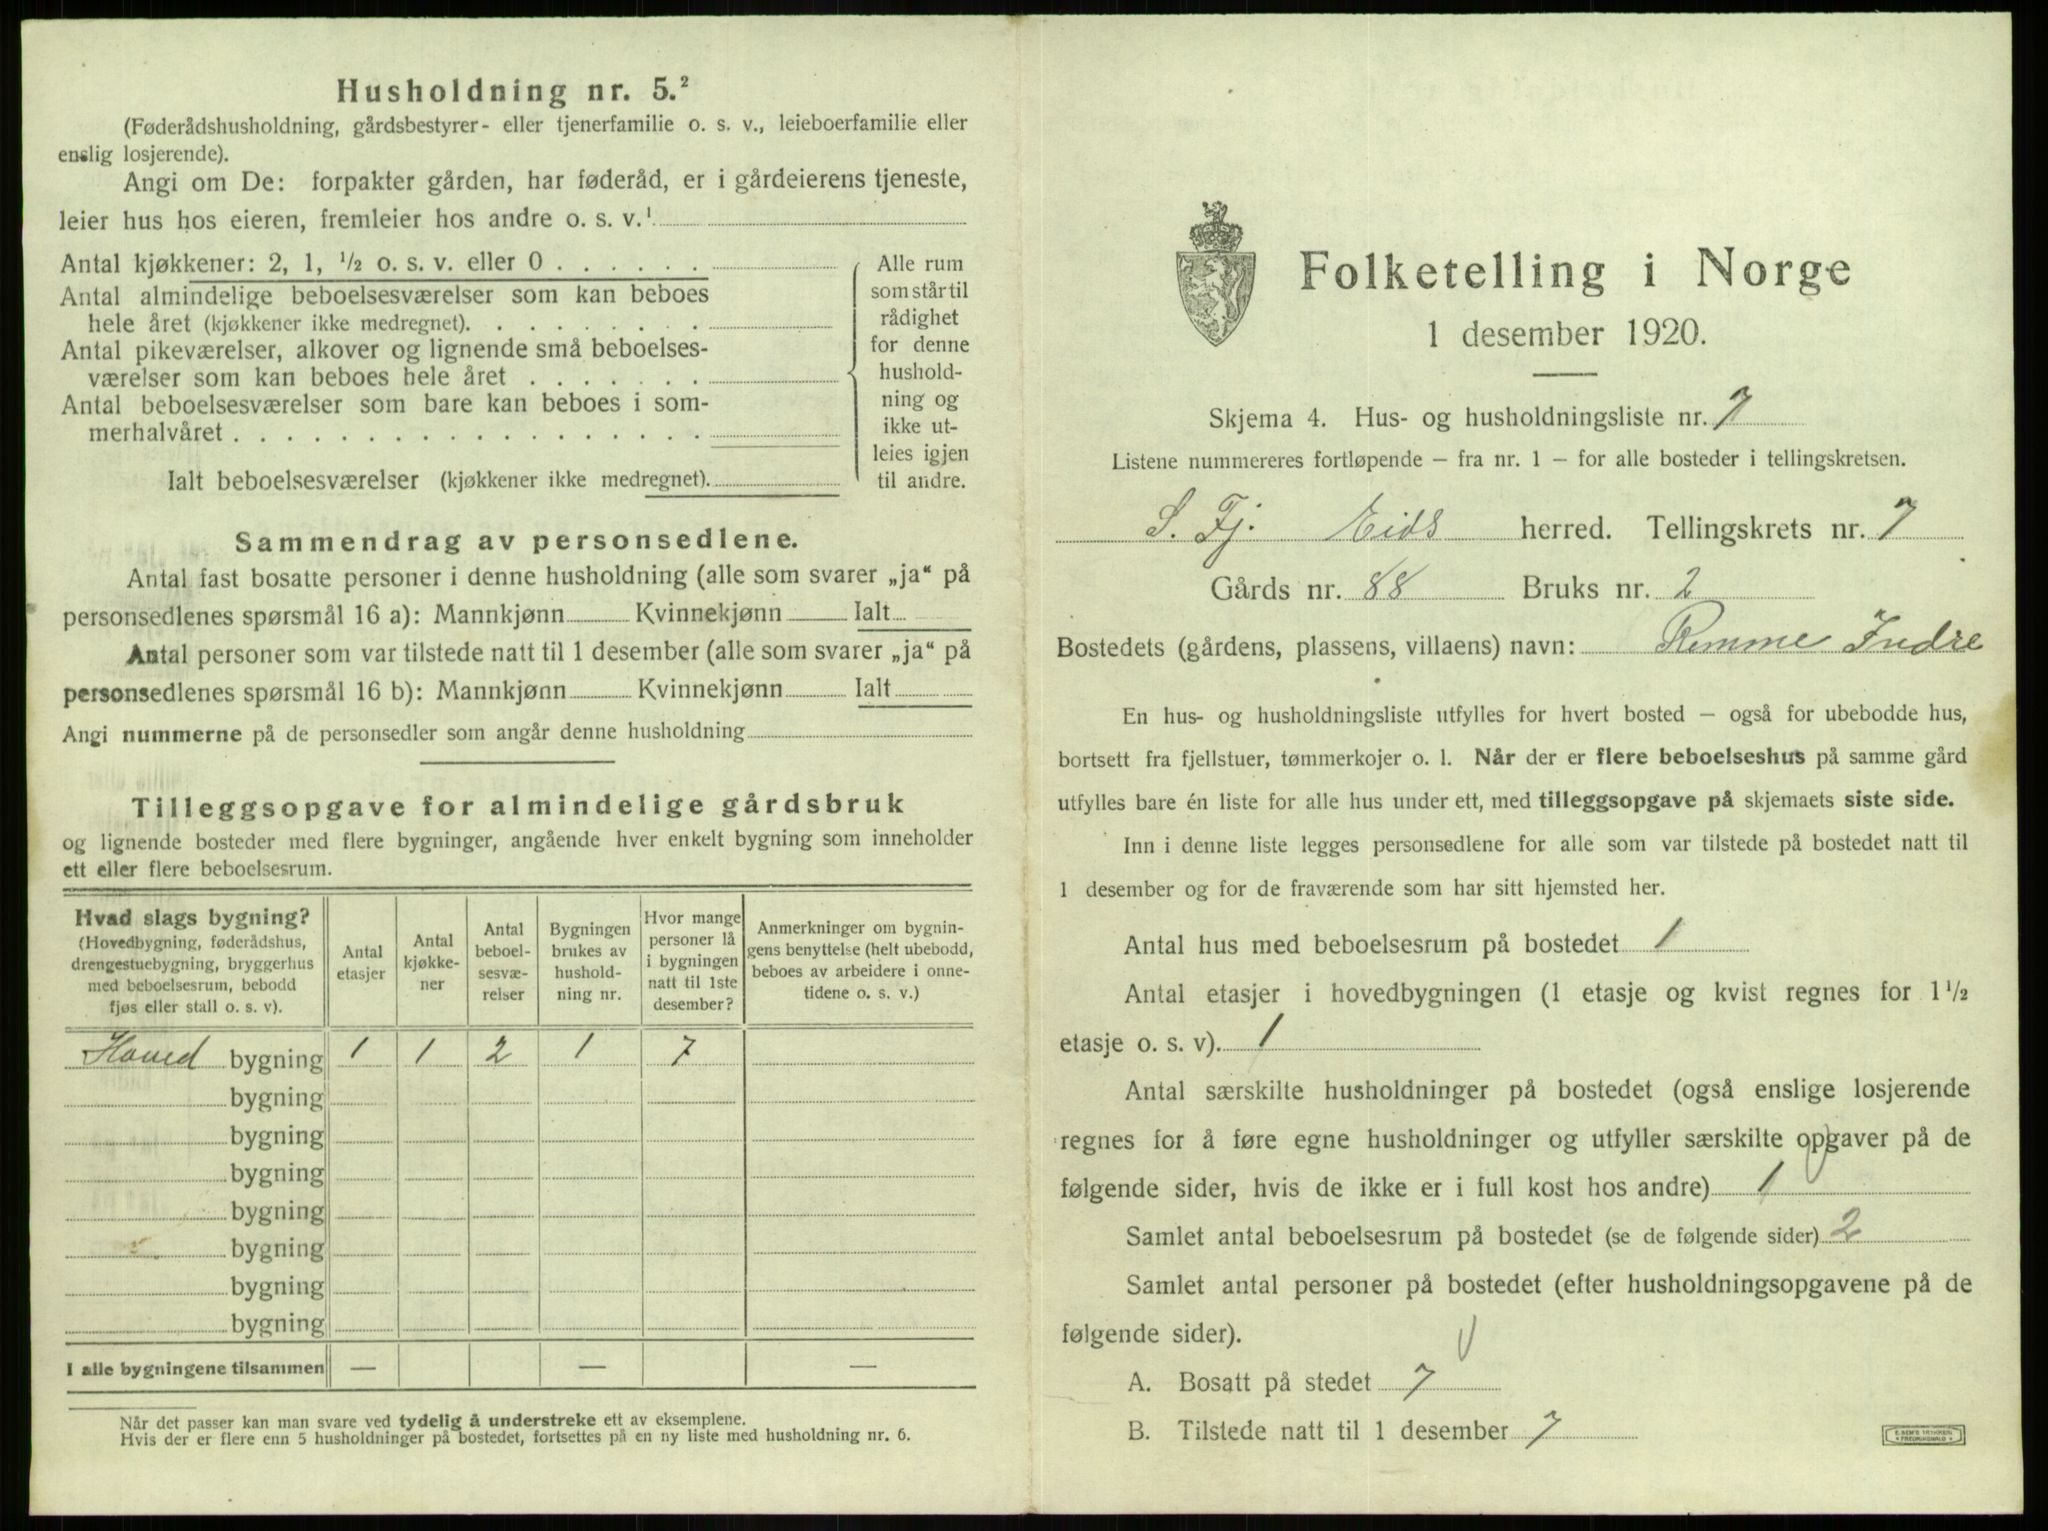 Husholdning nr. 5.²
(Føderådshusholdning, gårdsbestyrer- eller tjenerfamilie o. s. v., leieboerfamilie eller
enslig losjerende).
Angi om De: forpakter gården, har føderåd, er i gårdeierens tjeneste,
leier hus hos eieren, fremleier hos andre o. s. v.¹
Antal kjøkkener: 2, 1, ½ o. s. v. eller 0 . . . . . .
Antal almindelige beboelsesværelser som kan beboes
hele året (kjøkkener ikke medregnet). . . . . . . . .
Antal pikeværelser, alkover og lignende små beboelses-
værelser som kan beboes hele året . . . . . . .
Antal beboelsesværelser som bare kan beboes i som-
merhalvåret . . . . . . . . . . . . . . . . . .
Ialt beboelsesværelser (kjøkkener ikke medregnet).
Alle rum
som står til
rådighet
for denne
hushold-
ning og
ikke ut-
leies igjen
til andre.
Sammendrag av personsedlene.
Antal fast bosatte personer i denne husholdning (alle som svarer „ja“ på
personsedlenes spørsmål 16 a): Mannkjønn Kvinnekjønn Ialt
Antal personer som var tilstede natt til 1 desember (alle som svarer „ja“ på
personsedlenes spørsmål 16 b): Mannkjønn Kvinnekjønn Ialt
Angi nummerne på de personsedler som angår denne husholdning
Tilleggsopgave for almindelige gårdsbruk
og lignende bosteder med flere bygninger, angående hver enkelt bygning som inneholder
ett eller flere beboelsesrum.
Hvad slags bygning?
(Hovedbygning, føderådshus,
drengestuebygning, bryggerhus
med beboelsesrum, bebodd
fjøs eller stall o. s. v).
Antal
etasjer
Antal
kjøkke-
ner
Antal
beboel-
sesvæ-
relser
Bygningen
brukes av
hushold-
ning nr.
Hvor mange
personer lå
i bygningen
natt til 1ste
desember?
Anmerkninger om bygnin-
gens benyttelse (helt ubebodd,
beboes av arbeidere i onne-
tidene o. s. v.)
Hoved bygning 1 1 2 1 7
bygning
bygning
bygning
bygning
bygning
bygning
bygning
I alle bygningene tilsammen — — —
Når det passer kan man svare ved tydelig å understreke ett av eksemplene.
Hvis der er flere enn 5 husholdninger på bostedet, fortsettes på en ny liste med husholdning nr. 6.
Folketelling i Norge
1 desember 1920.
Skjema 4. Hus- og husholdningsliste nr. 7
Listene nummereres fortløpende — fra nr. 1 — for alle bosteder i tellingskretsen.
S. Fj. Eids herred. Tellingskrets nr. 7
Gårds nr. 88 Bruks nr. 2
Bostedets (gårdens, plassens, villaens) navn: Remme Indre
En hus- og husholdningsliste utfylles for hvert bosted — også for ubebodde hus,
bortsett fra fjellstuer, tømmerkojer o. l. Når der er flere beboelseshus på samme gård
utfylles bare én liste for alle hus under ett, med tilleggsopgave på skjemaets siste side.
Inn i denne liste legges personsedlene for alle som var tilstede på bostedet natt til
1 desember og for de fraværende som har sitt hjemsted her.
Antal hus med beboelsesrum på bostedet 1
Antal etasjer i hovedbygningen (1 etasje og kvist regnes for 1½
etasje o. s. v). 1
Antal særskilte husholdninger på bostedet (også enslige losjerende
regnes for å føre egne husholdninger og utfyller særskilte opgaver på de
følgende sider, hvis de ikke er i full kost hos andre) 1
Samlet antal beboelsesrum på bostedet (se de følgende sider) 2
Samlet antal personer på bostedet (efter husholdningsopgavene på de
følgende sider).
A. Bosatt på stedet 7
B. Tilstede natt til 1 desember 7